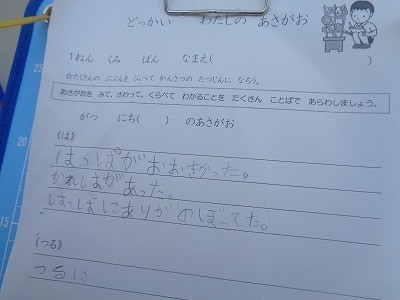 どっかい わたしの あさがお
1ねん くみ ばん なまえ( )
☆たくさんの ぶぶんを くらべて かんさつの たつじんに なろう。
あさがおを みて、さわって、くらべて わかることを たくさん ことばで あらわしましょう。
がつ にち( ) のあさがお
《は》
はっぱがおおきかった。
かれはがあった。
はっぱにありがのぼってた。
《つる》
つるに
25
20
15